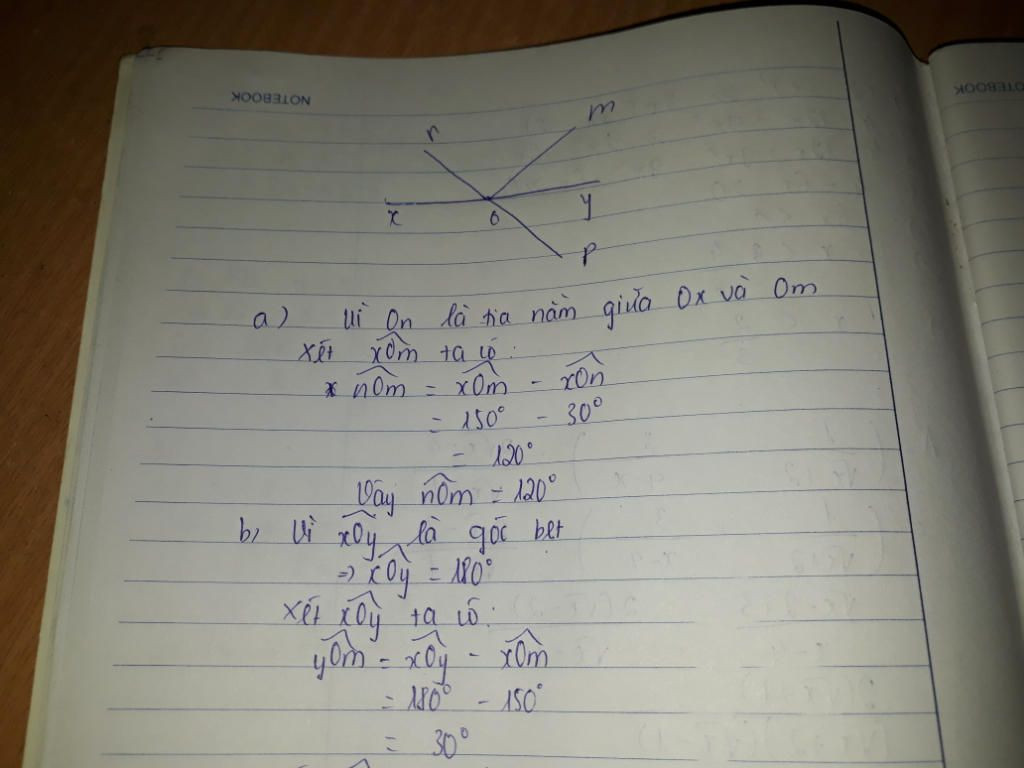 NOTEBOOK
NOTEBOOK
r m
x O y
p
a) Vì On là tia nằm giữa Ox và Om
Xét xOm ta có:
nOm = xOm - xOn
= 150° - 30°
= 120°
Vậy nOm = 120°
b, Vì xOy là góc bet
=> xOy = 180°
Xét xOy ta có:
yOm = xOy - xOm
= 180° - 150°
= 30°